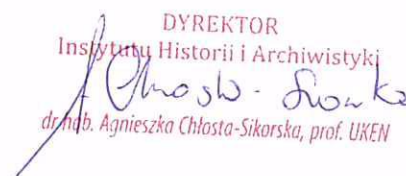 DYREKTOR
Instytutu Historii i Archiwistyki
dr hab. Agnieszka Chłosta-Sikorska, prof. UKEN